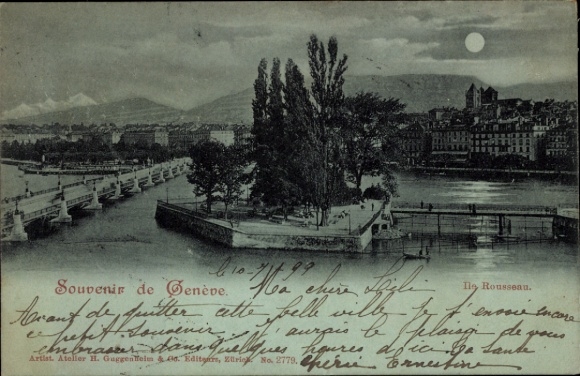 Souvenir de Genève.
Ile Rousseau.
le 10-7-99
Ma chère
Avant de quitter cette belle ville je t'envoie encore
ce petit souvenir j'aurais le plaisir de vous
embrasser dans quelques heures d'ici ta
chérie Ernestine
Artist. Atelier H. Guggenheim & Co. Editeurs, Zürich. No. 2779.